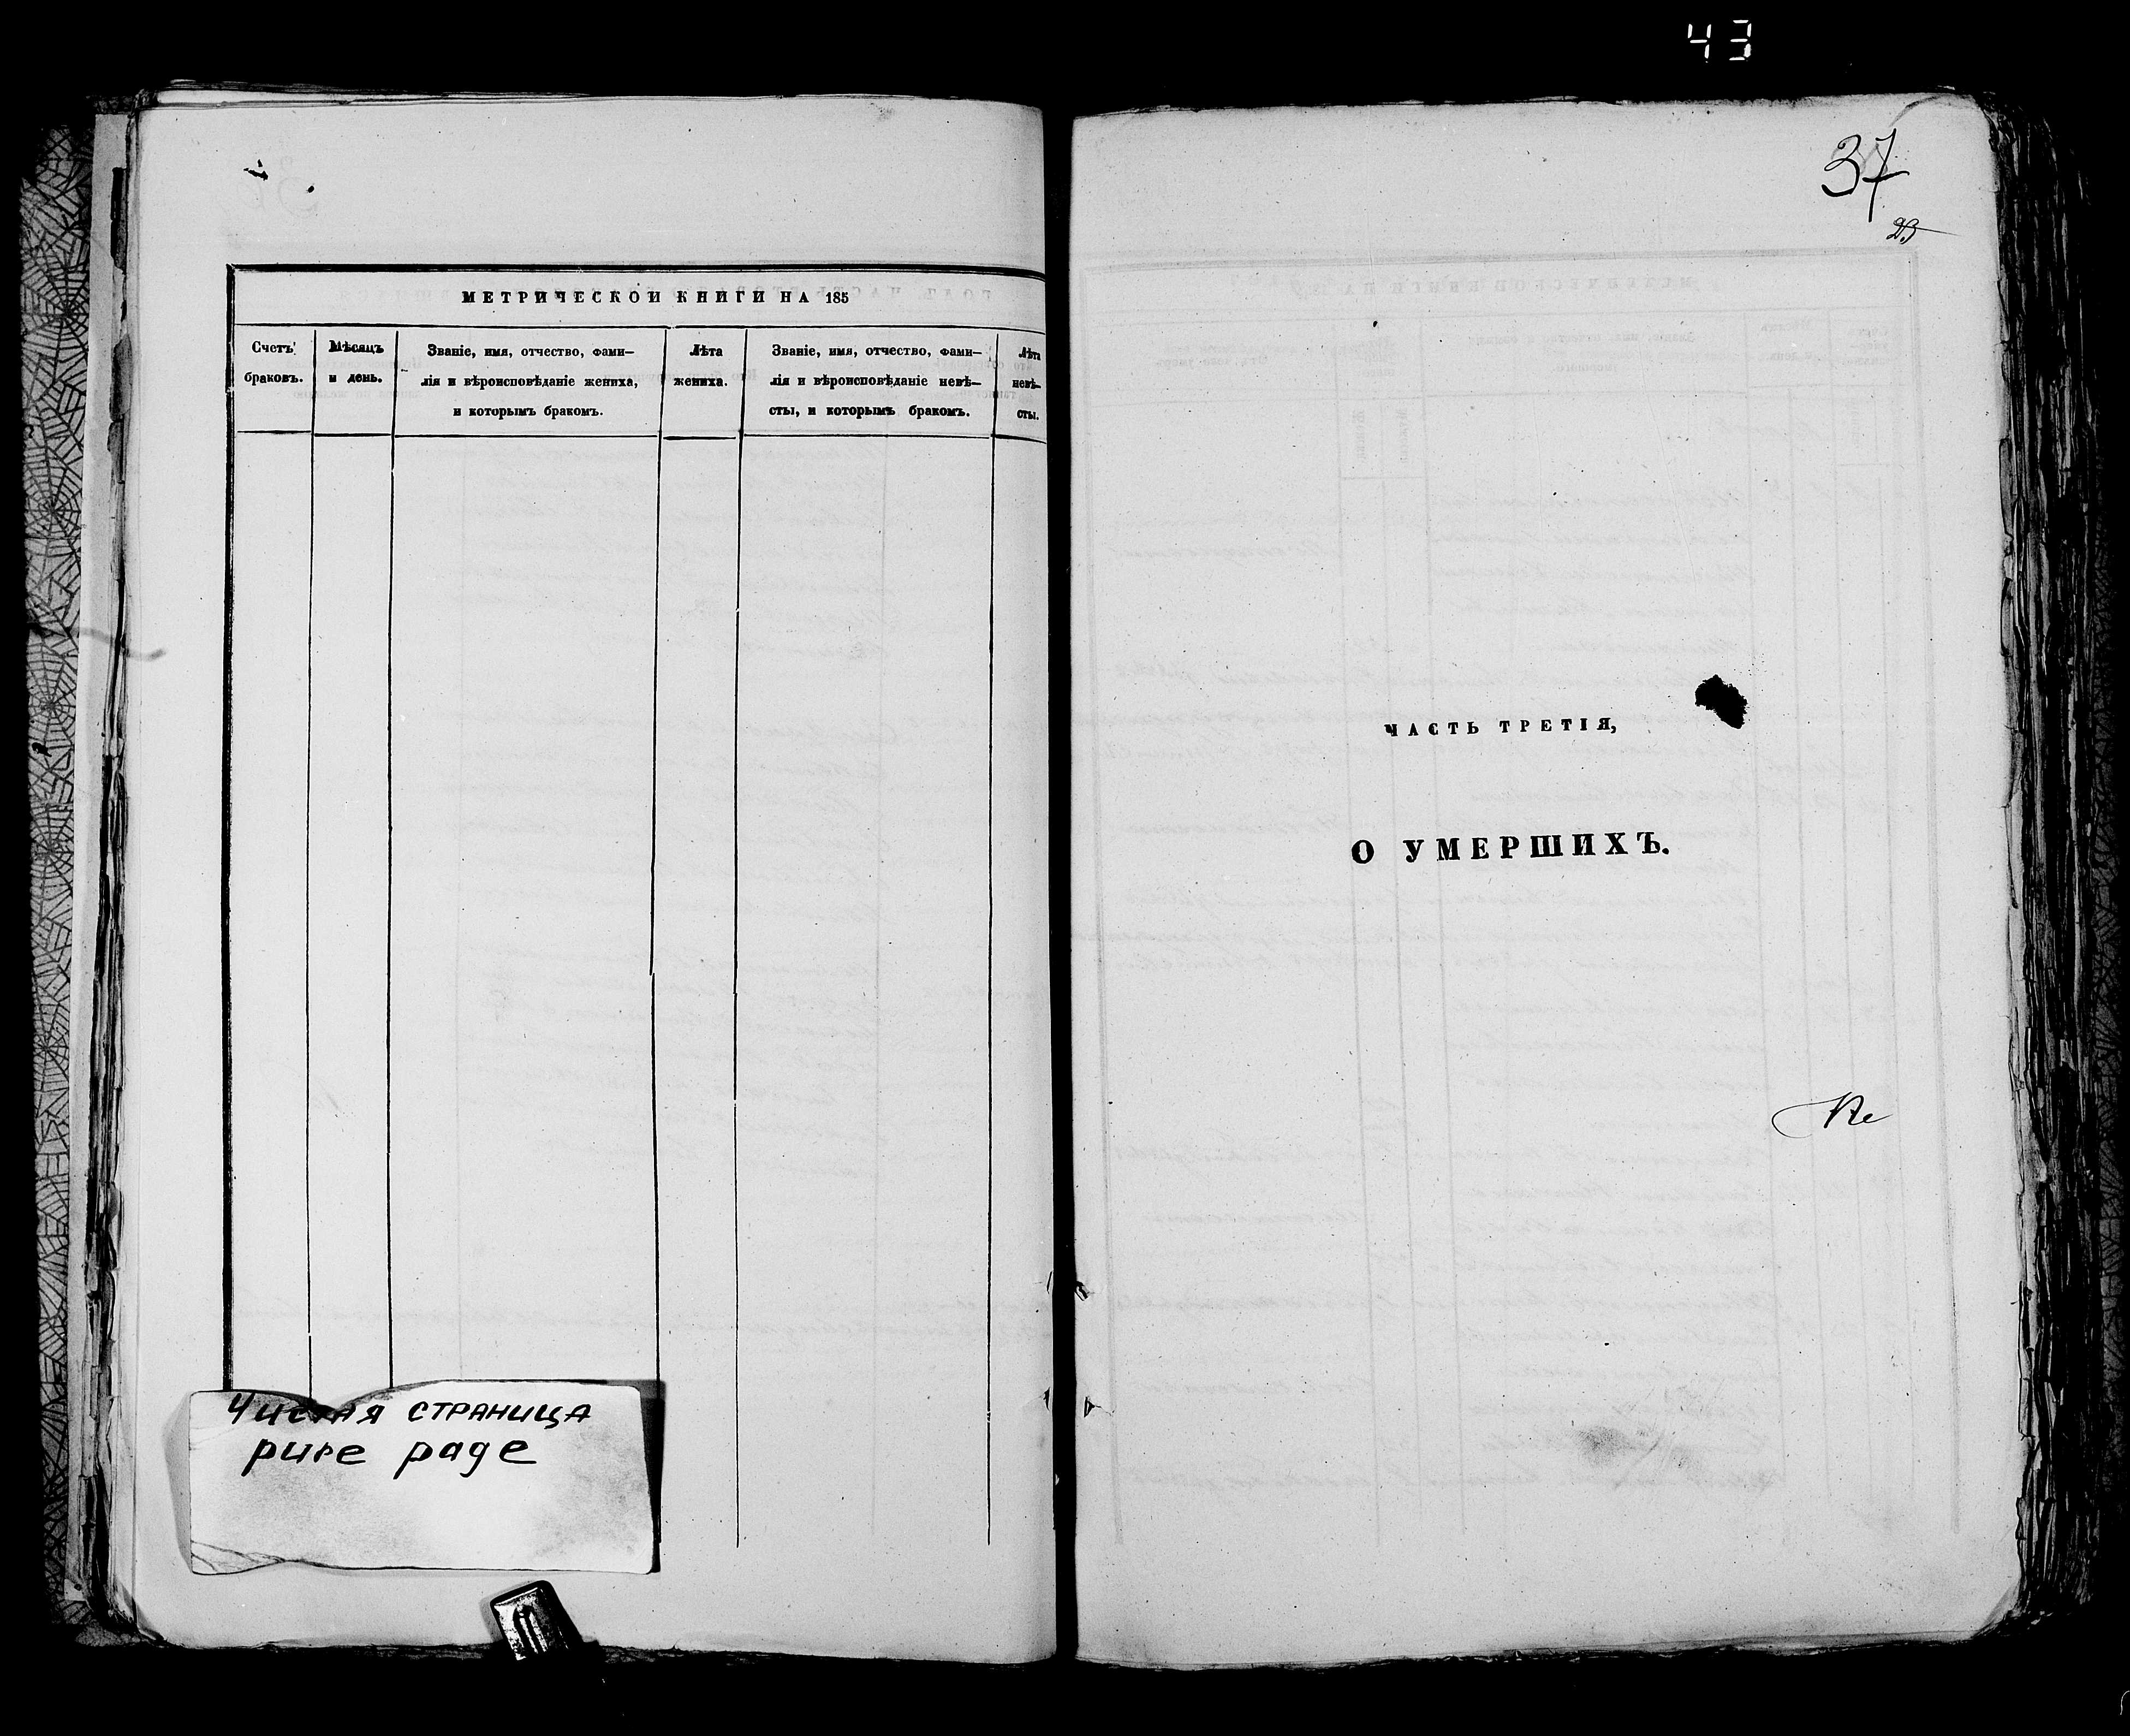 43
МЕТРИЧЕСКОЙ КНИГИ НА 185
Счетъ
браковъ.
Мѣсяцъ
и день.
Званіе, имя, отчество, фами–
лія и вѣроисповѣданіе жениха,
и которымъ бракомъ.
Лѣта
жениха.
Званіе, имя, отчество, фами–
лія и вѣроисповѣданіе невѣ–
сты, и которымъ бракомъ.
Лѣта
невѣ–
сты.
Чистая страница
pure page
37
ЧАСТЬ ТРЕТІЯ,
О УМЕРШИХЪ.